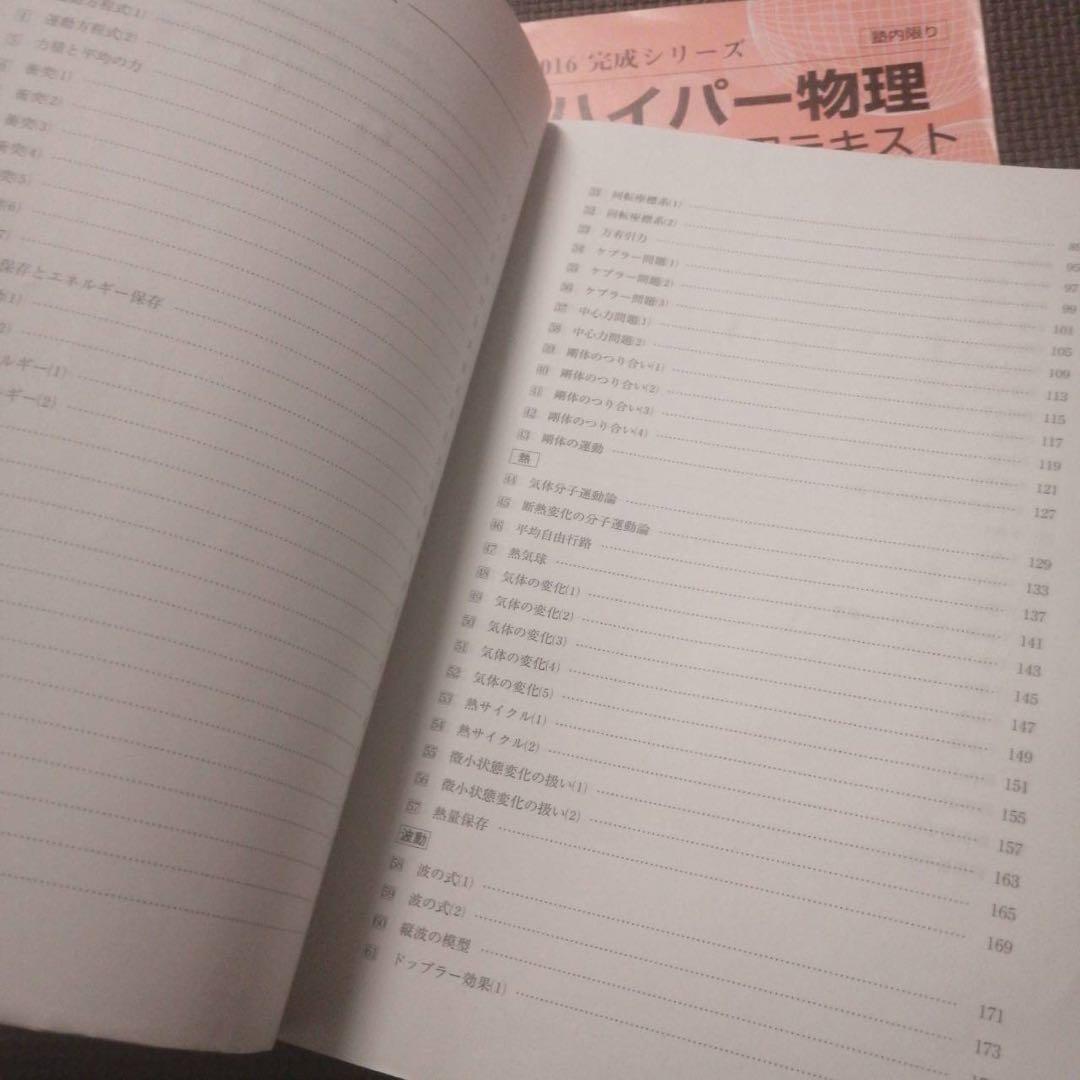 塾内限り
016 完成シリーズ
ハイパー物理
テキスト
運動方程式(1)
4 運動方程式(2)
5 力積と平均の力
衝突(1)
衝突(2)
衝突(3)
衝突(4)
突(5)
(6)
保存とエネルギー保存
(1)
ルギー(1)
ギー(2)
31 回転座標系(1)
32 回転座標系(2)
33 万有引力 95
34 ケプラー問題(1) 97
35 ケプラー問題(2) 99
36 ケプラー問題(3) 101
37 中心力問題(1) 105
38 中心力問題(2) 109
39 剛体のつり合い(1) 113
40 剛体のつり合い(2) 115
41 剛体のつり合い(3) 117
42 剛体のつり合い(4) 119
43 剛体の運動 121
熱
44 気体分子運動論 127
45 断熱変化の分子運動論 129
46 平均自由行路 133
47 熱気球 137
48 気体の変化(1) 141
49 気体の変化(2) 143
50 気体の変化(3) 145
51 気体の変化(4) 147
52 気体の変化(5) 149
53 熱サイクル(1) 151
54 熱サイクル(2) 155
55 微小状態変化の扱い(1) 157
56 微小状態変化の扱い(2) 163
57 熱量保存 165
波動
58 波の式(1) 169
59 波の式(2) 171
60 縦波の模型 173
61 ドップラー効果(1)